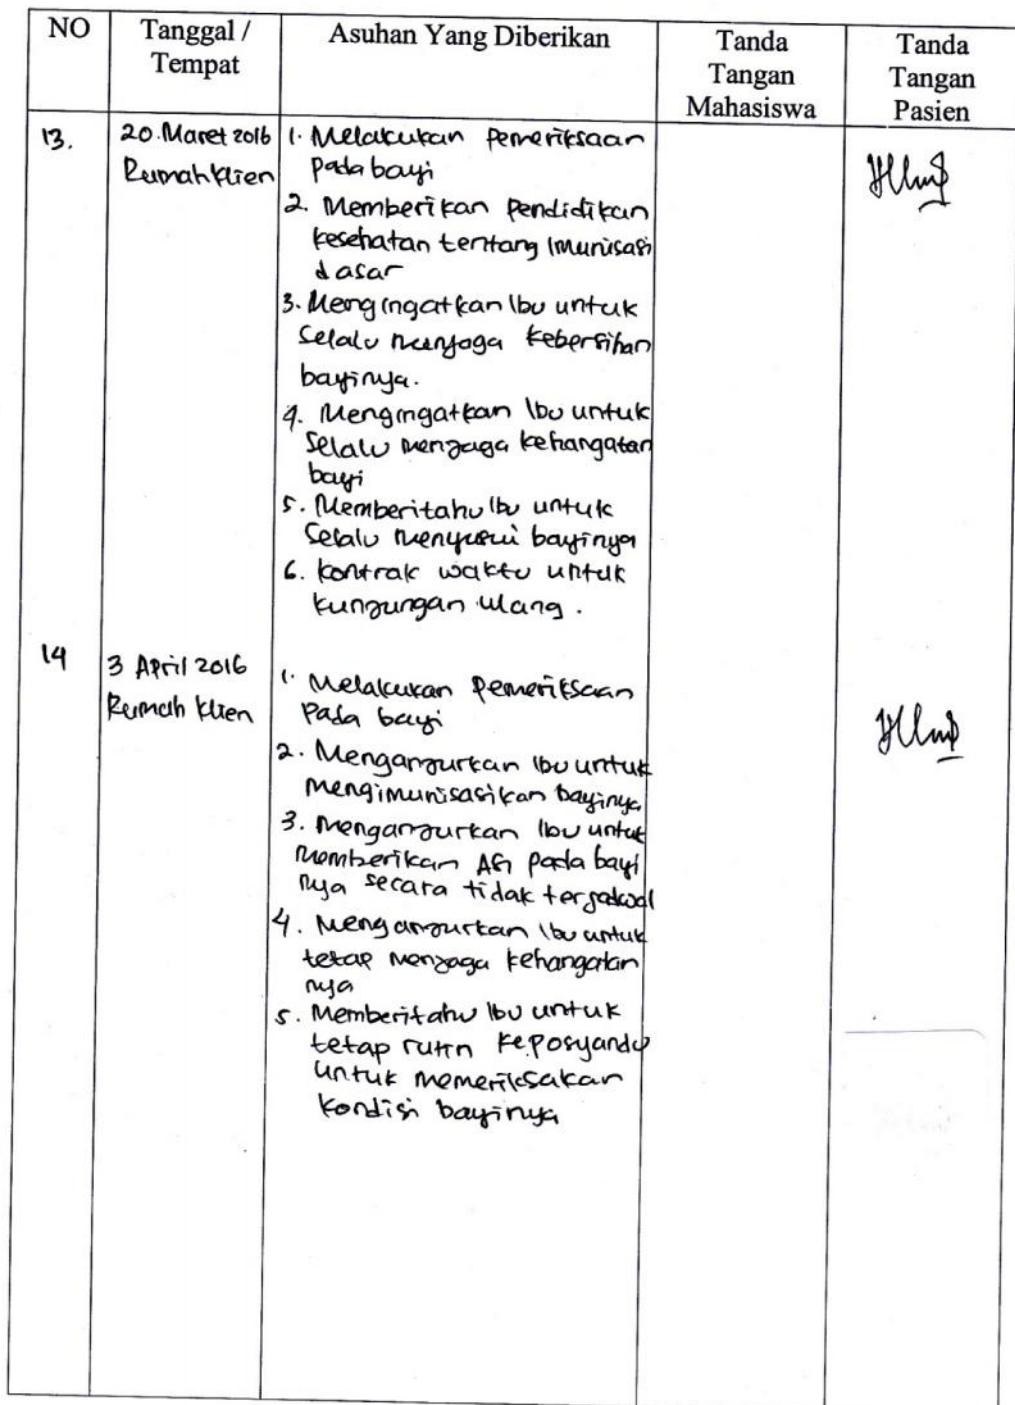 NO
Tanggal /
Tempat
Asuhan Yang Diberikan
Tanda
Tangan
Mahasiswa
Tanda
Tangan
Pasien
13.
20 Maret 2016
Rumah klien
1. Melakukan Pemeriksaan
Pada bayi
2. Memberikan Pendidikan
kesehatan tentang Imunisasi
dasar
3. Mengingatkan Ibu untuk
Selalu menjaga kebersihan
bayinya.
4. Mengingatkan Ibu untuk
Selalu menjaga kehangatan
bayi
5. Memberitahu Ibu untuk
Selalu menyusui bayinya
6. kontrak waktu untuk
kunjungan ulang.
14
3 April 2016
Rumah klien
1. Melakukan Pemeriksaan
Pada bayi
2. Menganjurkan Ibu untuk
mengimunisasikan bayinya
3. Menganjurkan Ibu untuk
Memberikan ASI pada bayi
nya secara tidak terjadwal
4. Menganjurkan Ibu untuk
tetap menjaga kehangatan
nya
5. Memberitahu Ibu untuk
tetap rutin keposyandu
untuk memeriksakan
kondisi bayinya